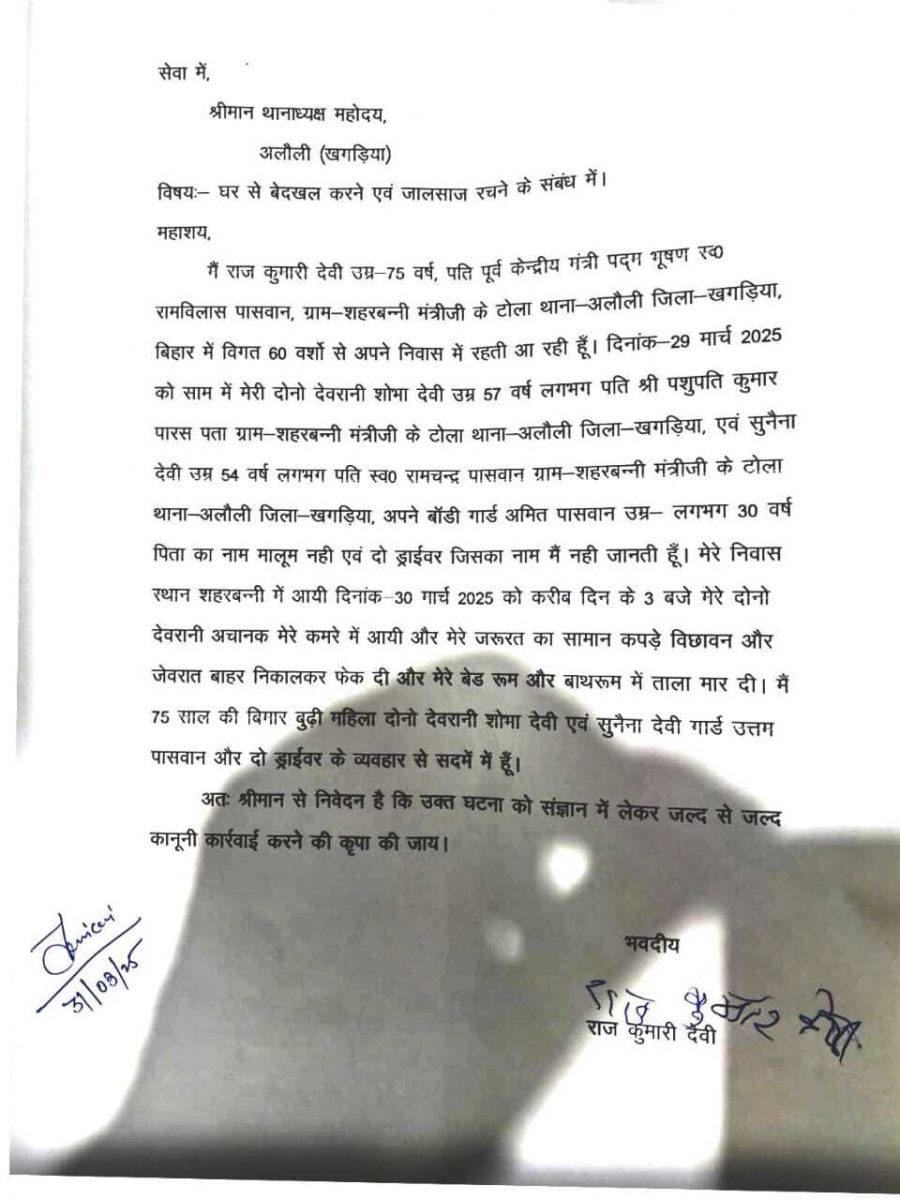 सेवा में,
श्रीमान थानाध्यक्ष महोदय,
अलौली (खगड़िया)
विषयः– घर से बेदखल करने एवं जालसाज रचने के संबंध में।
महाशय,
मैं राज कुमारी देवी उम्र–75 वर्ष, पति पूर्व केन्द्रीय मंत्री पद्म भूषण स्व०
रामविलास पासवान, ग्राम–शहरबन्नी मंत्रीजी के टोला थाना–अलौली जिला–खगड़िया,
बिहार में विगत 60 वर्शो से अपने निवास में रहती आ रही हूँ। दिनांक–29 मार्च 2025
को साम में मेरी दोनो देवरानी शोभा देवी उम्र 57 वर्ष लगभग पति श्री पशुपति कुमार
पारस पता ग्राम–शहरबन्नी मंत्रीजी के टोला थाना–अलौली जिला–खगड़िया, एवं सुनैना
देवी उम्र 54 वर्ष लगभग पति स्व० रामचन्द्र पासवान ग्राम–शहरबन्नी मंत्रीजी के टोला
थाना–अलौली जिला–खगड़िया, अपने बॉडी गार्ड अमित पासवान उम्र– लगभग 30 वर्ष
पिता का नाम मालूम नही एवं दो ड्राईवर जिसका नाम मैं नही जानती हूँ। मेरे निवास
स्थान शहरबन्नी में आयी दिनांक–30 मार्च 2025 को करीब दिन के 3 बजे मेरे दोनो
देवरानी अचानक मेरे कमरे में आयी और मेरे जरूरत का सामान कपड़े विछावन और
जेवरात बाहर निकालकर फेक दी और मेरे बेड रूम और बाथरूम में ताला मार दी। मैं
75 साल की बिमार बुढ़ी महिला दोनो देवरानी शोभा देवी एवं सुनैना देवी गार्ड उत्तम
पासवान और दो ड्राईवर के व्यवहार से सदमें में हूँ।
अतः श्रीमान से निवेदन है कि उक्त घटना को संज्ञान में लेकर जल्द से जल्द
कानूनी कार्रवाई करने की कृपा की जाय।
31/03/25
भवदीय
राज कुमार
राज कुमारी देवी